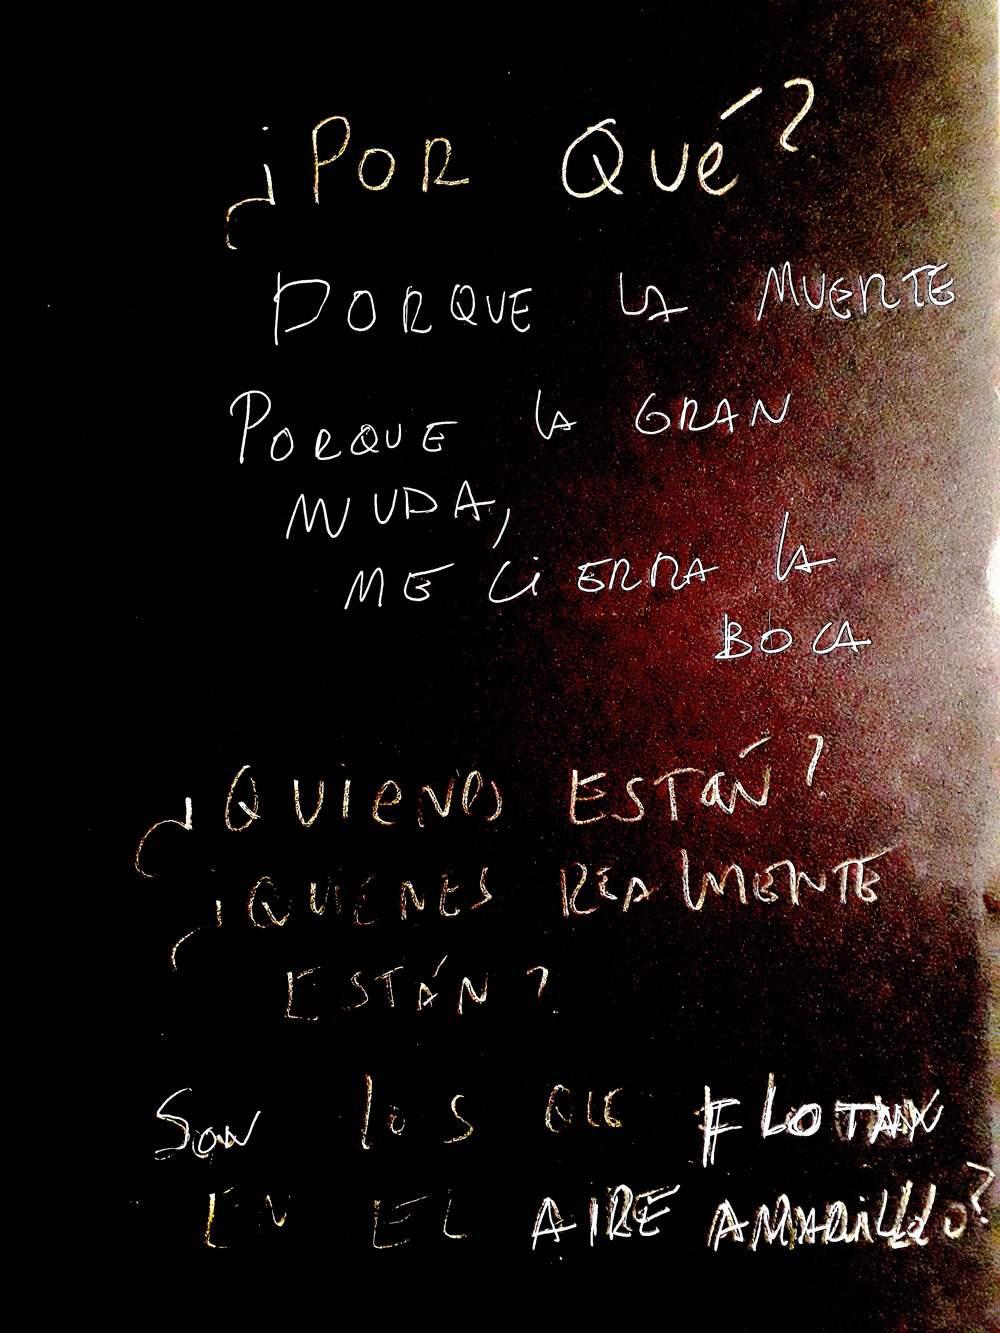 ¿POR QUÉ?
PORQUE LA MUERTE
PORQUE LA GRAN
MUDA,
ME CIERRA LA
BOCA
¿QUIENES ESTÁN?
¿QUIENES REALMENTE
ESTÁN?
SON LOS QUE FLOTAN
EN EL AIRE AMARILLO?